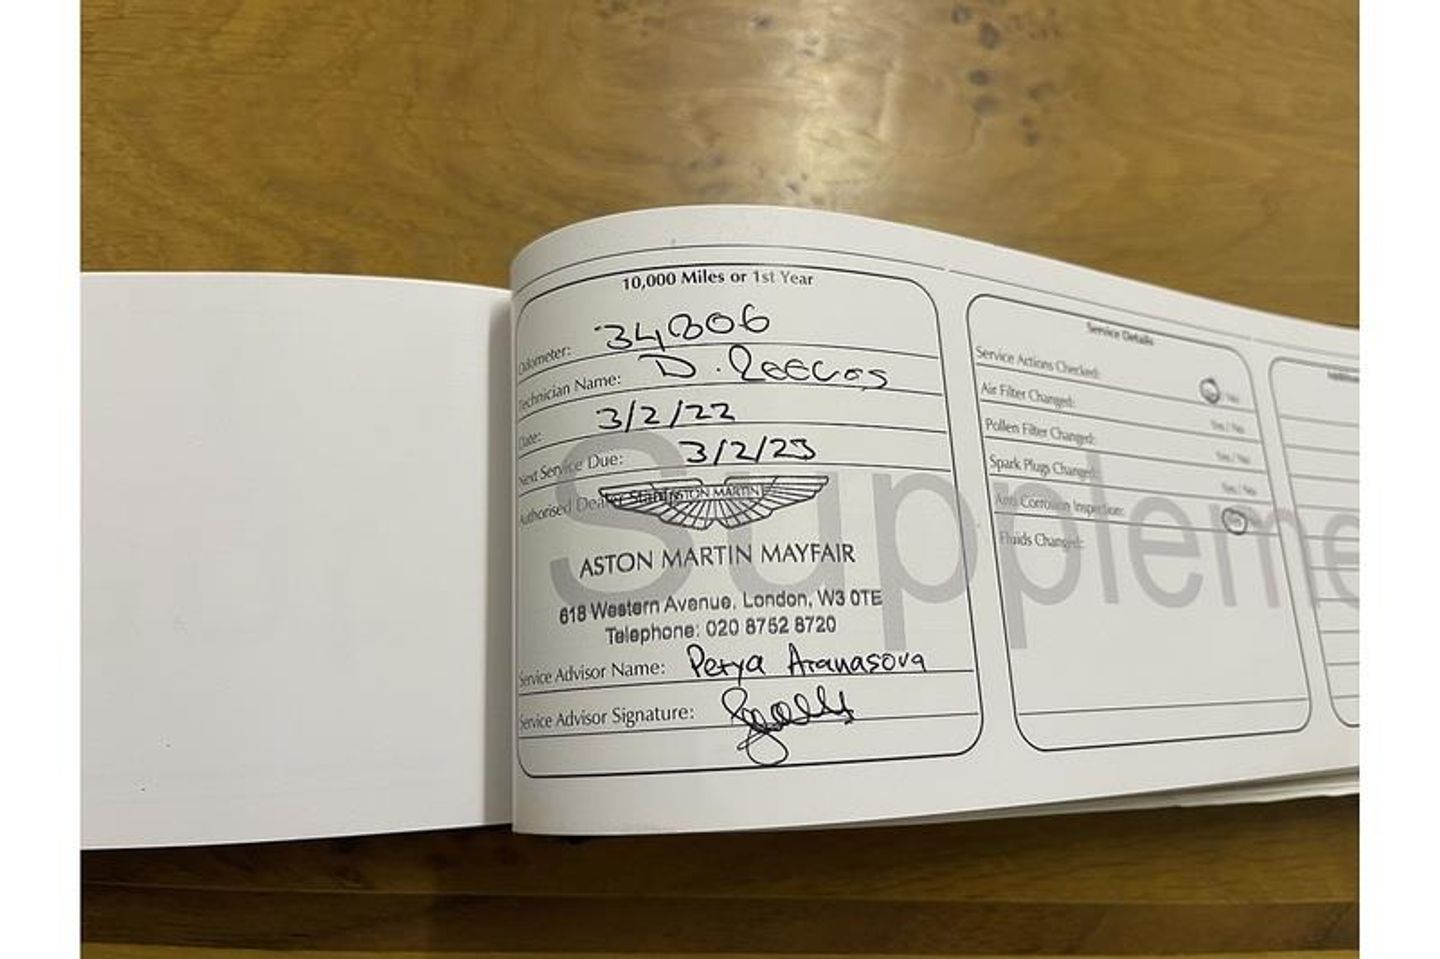 10,000 Miles or 1st Year
Odometer: 34306
Technician Name: D. Reeves
Date: 3/2/22
Next Service Due: 3/2/23
Authorised Dealer Stamp:
ASTON MARTIN
ASTON MARTIN MAYFAIR
618 Western Avenue, London, W3 0TE
Telephone: 020 8752 8720
Service Advisor Name: Petya Atanasova
Service Advisor Signature:
Supplem
Service Details
Service Actions Checked:
Air Filter Changed: Yes / No
Pollen Filter Changed: Yes / No
Spark Plugs Changed: Yes / No
Anti Corrosion Inspection: Yes
Fluids Changed: